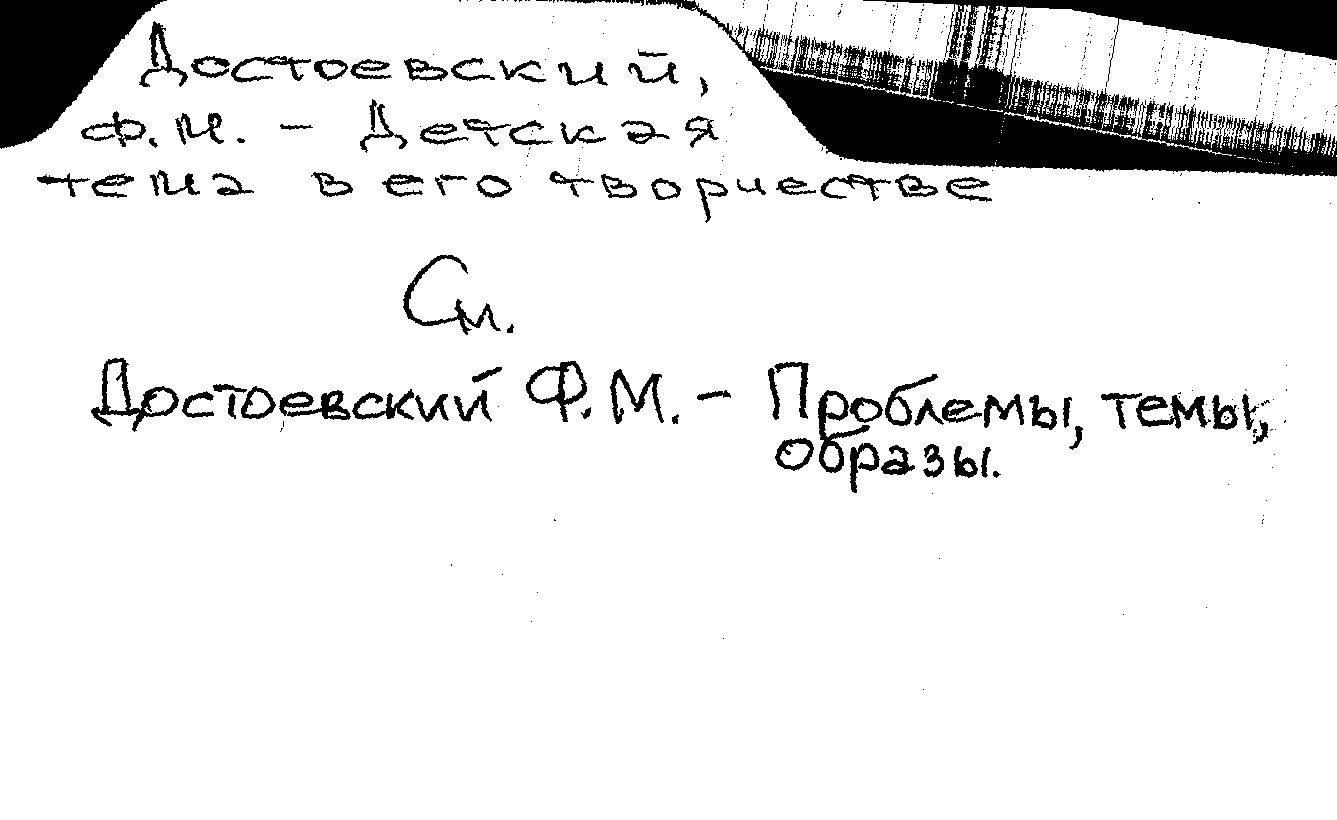 Достоевский,
Ф.М. - Детская
тема в его творчестве
См.
Достоевский Ф.М. - Проблемы, темы,
образы.